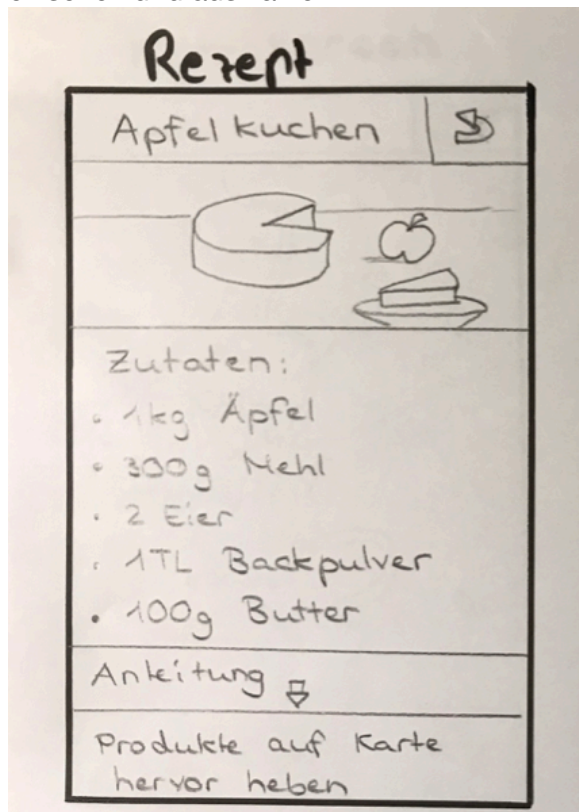 Rezept
Apfelkuchen
Zutaten:
• 1kg Äpfel
• 300g Mehl
• 2 Eier
• 1TL Backpulver
• 100g Butter
Anleitung
Produkte auf Karte
hervor heben